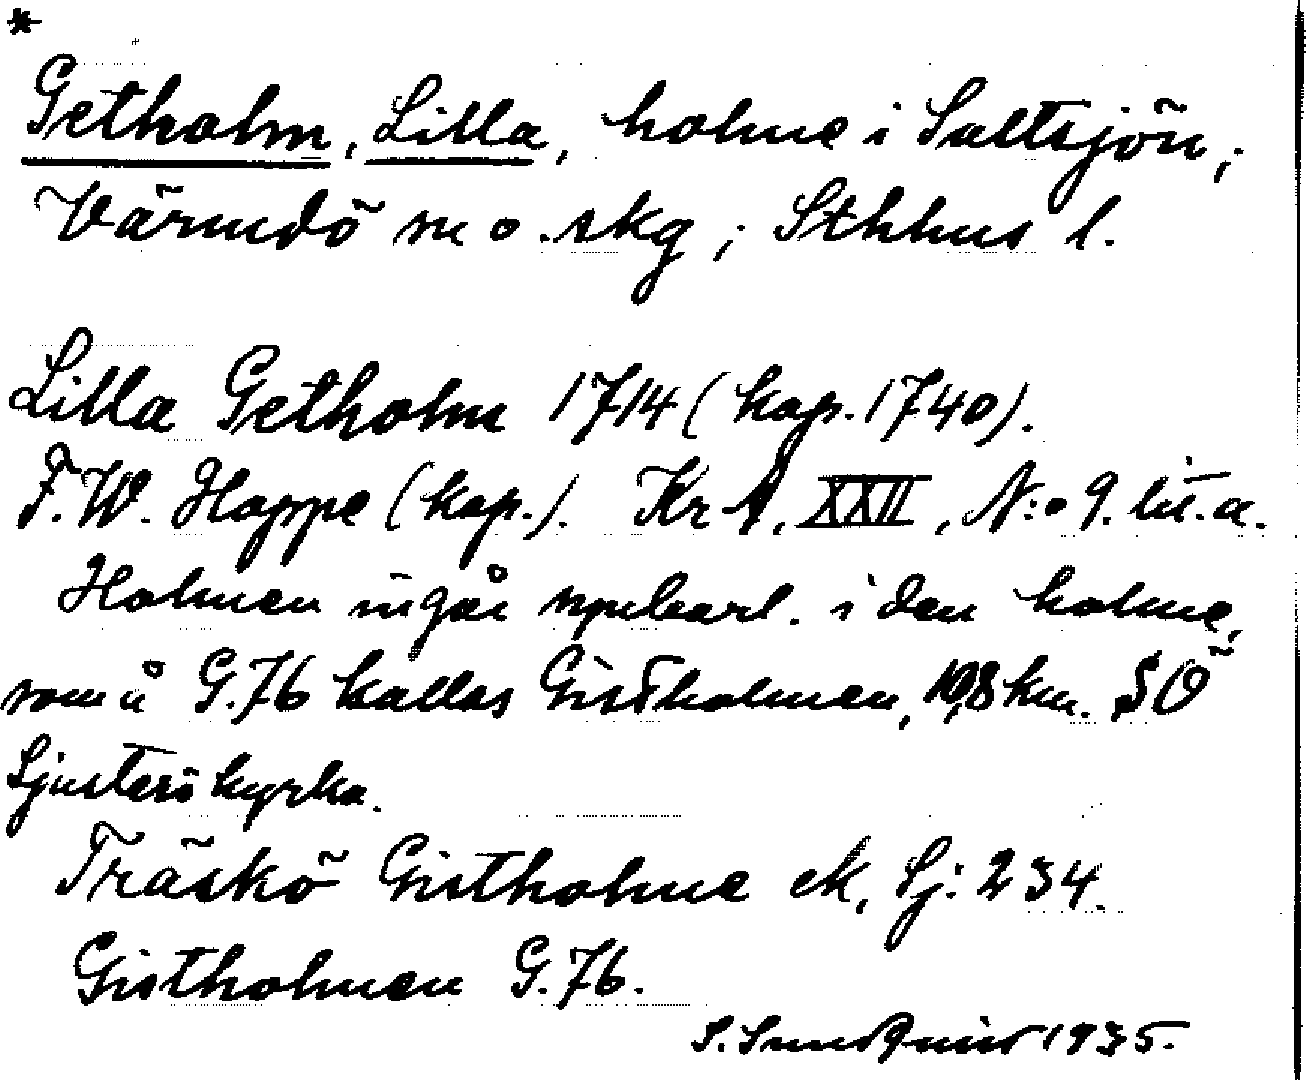 *
Getholm, Lilla, holme i Saltsjön;
Värmdö sn o. skg; Sthlms l.
Lilla Getholm 1714 (kop. 1740).
F.W. Hoppe (kop.). Kr A, XXII, N:o 9. lit. a.
Holmen ingår uppenbarl. i den holme,
som å G.76 kallas Gistholmen, 10,8 km. SÖ
Ljusterö kyrka.
Träskö Gistholme ek, Lj: 234.
Gistholmen G.76.
S. Sundquist 1935.